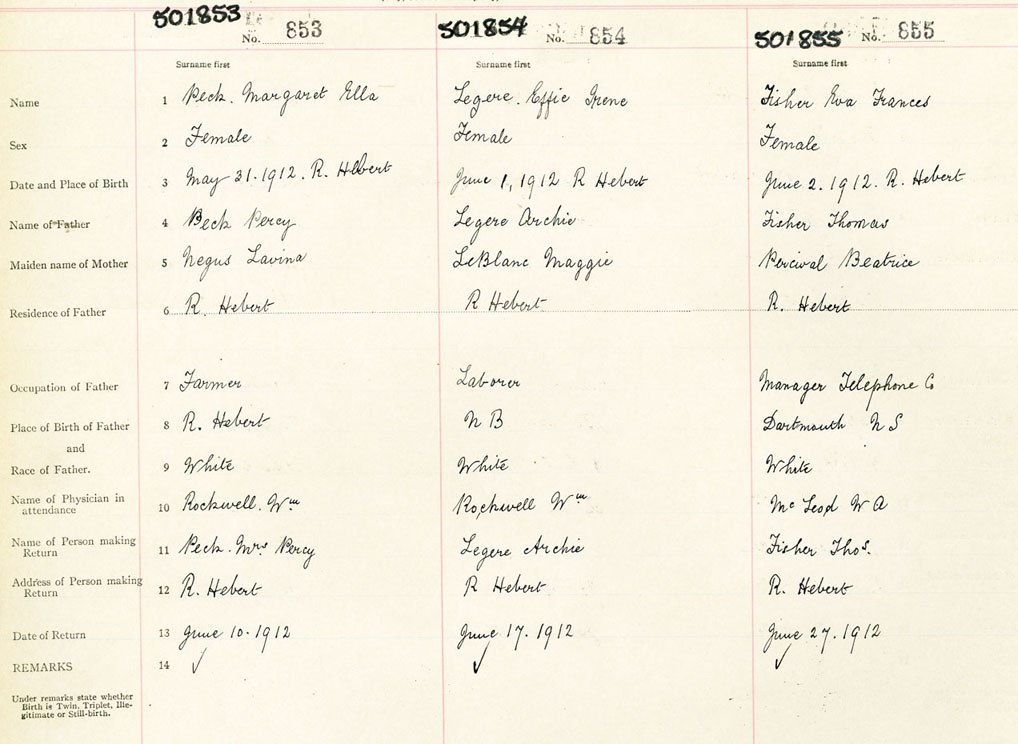 501853 No. 853 501854 No. 854 501855 No. 855
Surname first Surname first Surname first
Name 1 Peck. Margaret Ella Legere. Effie Irene Fisher Eva Frances
Sex 2 Female Female Female
Date and Place of Birth 3 May 31. 1912. R. Hebert June 1, 1912 R Hebert June 2. 1912. R. Hebert
Name of Father 4 Peck Percy Legere Archie Fisher Thomas
Maiden name of Mother 5 Negus Lavina LeBlanc Maggie Percival Beatrice
Residence of Father 6 R. Hebert R Hebert R. Hebert
Occupation of Father 7 Farmer Laborer Manager Telephone Co
Place of Birth of Father 8 R. Hebert N B Dartmouth N S
and
Race of Father. 9 White White White
Name of Physician in
attendance 10 Rockwell. Wm Rockwell Wm McLeod W A
Name of Person making
Return 11 Peck. Mrs Percy Legere Archie Fisher Thos.
Address of Person making
Return 12 R. Hebert R Hebert R. Hebert
Date of Return 13 June 10. 1912 June 17. 1912 June 27. 1912
REMARKS 14 ✓ ✓ ✓
Under remarks state whether
Birth is Twin, Triplet, Ille-
gitimate or Still-birth.